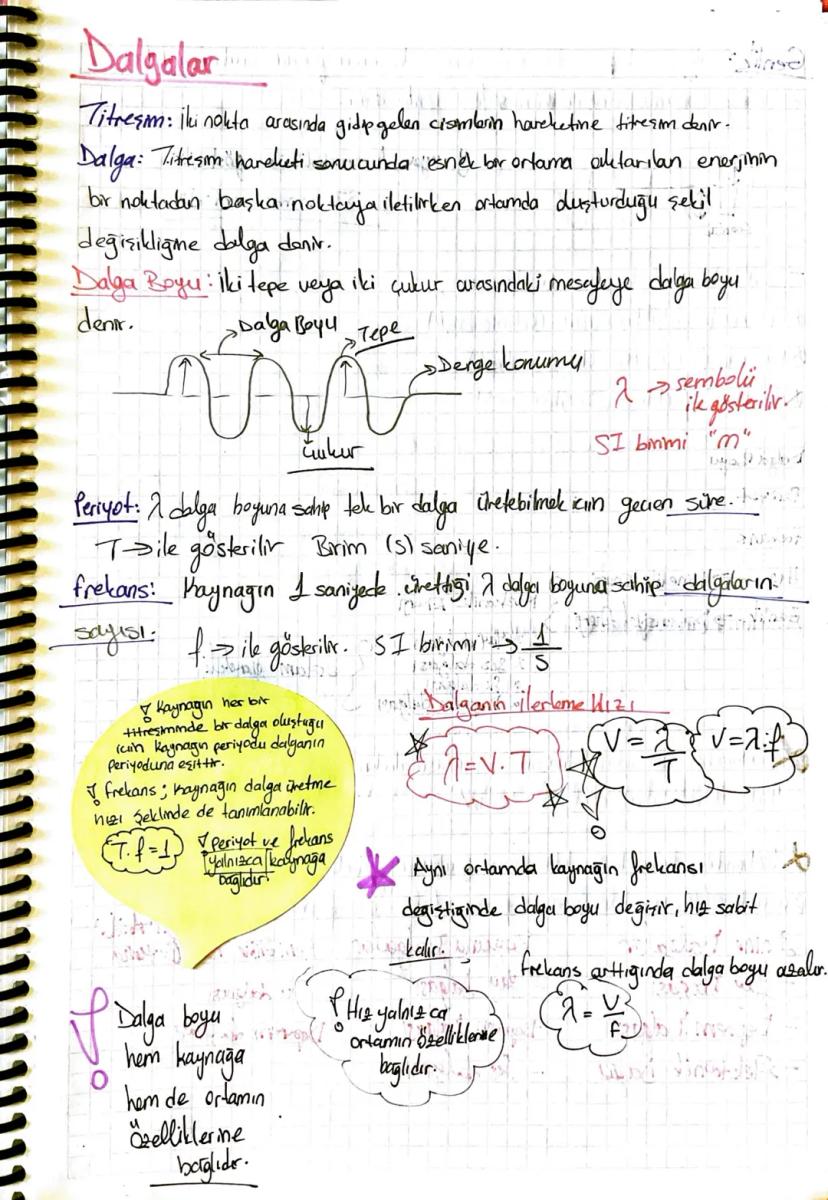 Dalgalar
Titreşim: İki nokta arasında gidip gelen cisimlerin hareketine titreşim denir.
Dalga: Titreşim hareketi sonucunda esnek bir ortama aktarılan enerjinin
bir noktadan başka noktaya iletilirken ortamda oluşturduğu şekil
değişikliğine dalga denir.
Dalga Boyu: İki tepe veya iki çukur arasındaki mesafeye dalga boyu
denir.
Dalga Boyu
Tepe
Denge konumu
Çukur
λ → sembolü
ile gösterilir.
SI birimi "m"
Periyot: λ dalga boyuna sahip tek bir dalga üretebilmek için geçen süre.
T → ile gösterilir Birim (s) saniye.
frekans: Kaynağın 1 saniyede ürettiği λ dalga boyuna sahip dalgaların
sayısı.
f → ile gösterilir. SI birimi → 1/s
! Kaynağın her bir
titreşiminde bir dalga oluştuğu
için kaynağın periyodu dalganın
periyoduna eşittir.
! frekans; kaynağın dalga üretme
hızı şeklinde de tanımlanabilir.
T.f=1
! periyot ve frekans
yalnızca kaynağa
bağlıdır
Dalganın ilerleme Hızı
λ=V.T
V=λ/T
V=λ.f
!
Aynı ortamda kaynağın frekansı
değiştiğinde dalga boyu değişir, hız sabit
kalır.
frekans arttığında dalga boyu azalır.
λ=V/f
! Hız yalnızca
ortamın özelliklerine
bağlıdır.
! Dalga boyu
hem kaynağa
hem de ortamın
özelliklerine
bağlıdır.